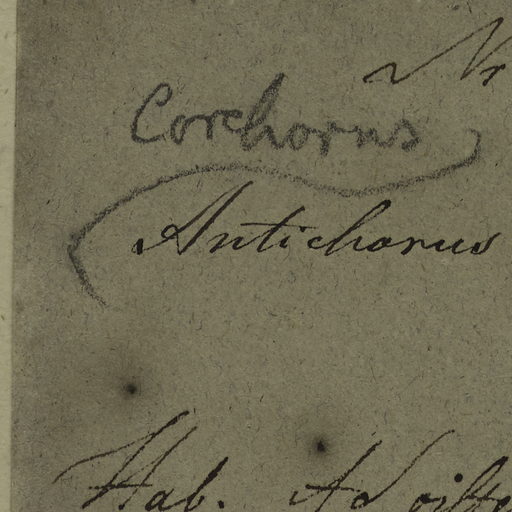 Nr
Corchorus
Antichorus
Hab. Ad